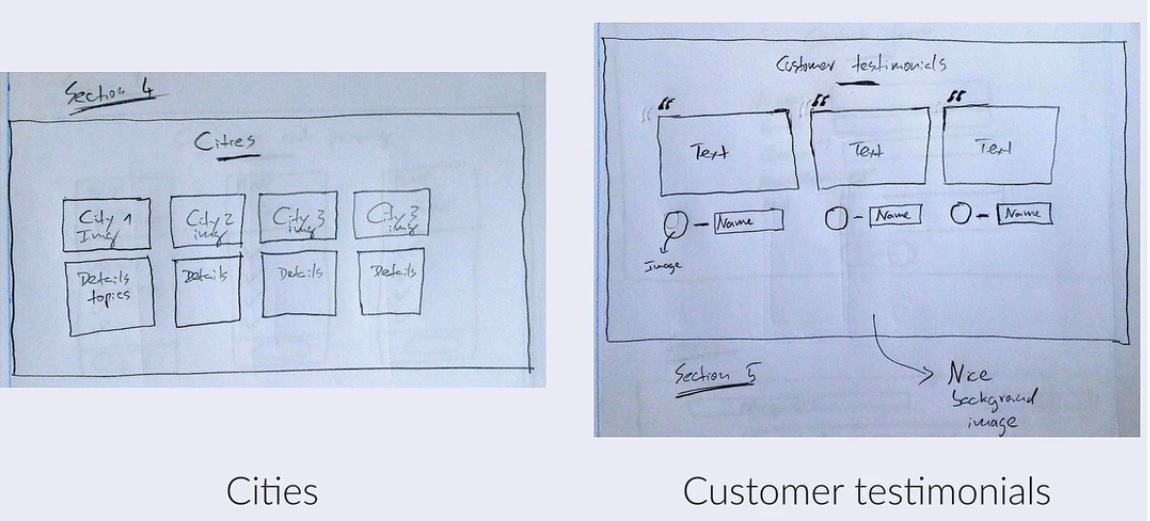 Section 4
Cities
City 1
Img
City 2
img
City 3
img
City 3
img
Details
topics
Details
Details
Details
Customer testimonials
“
“
“
Text
Text
Text
Name
Name
Name
Image
Section 5
Nice
background
image
Cities
Customer testimonials